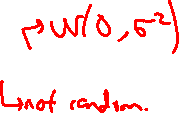 ↱N(0, σ²)
↳not random.